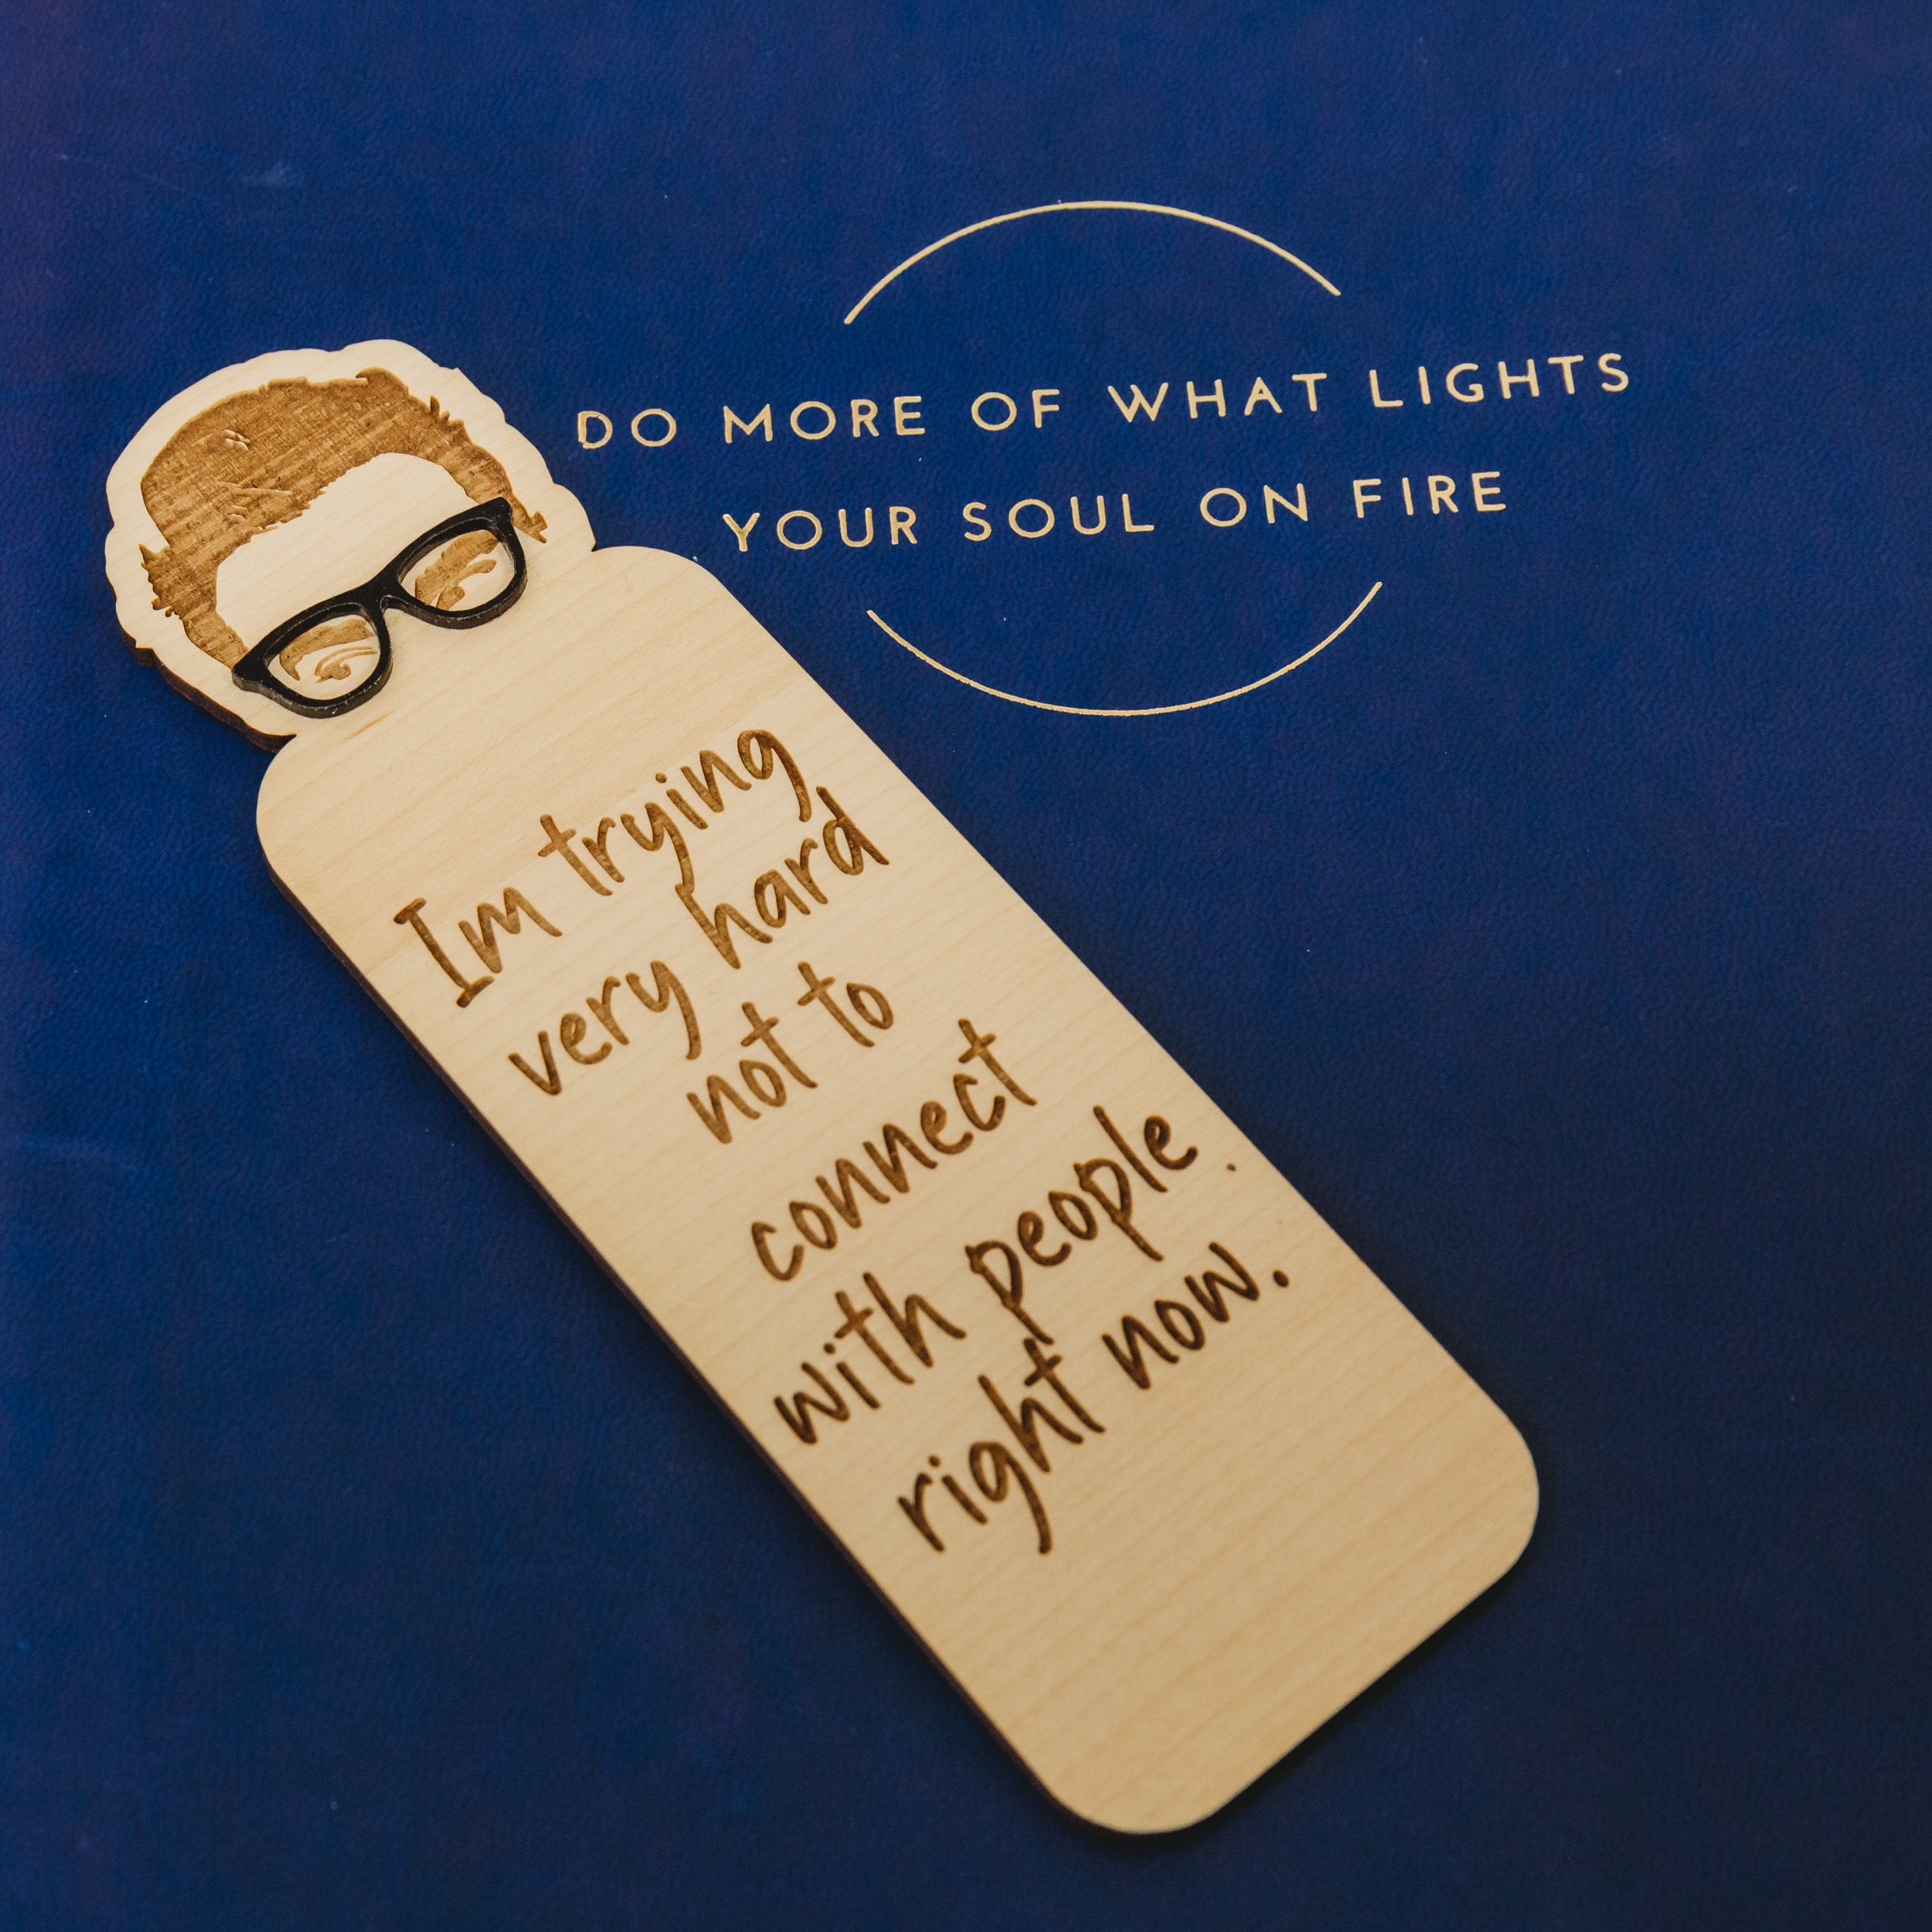 DO MORE OF WHAT LIGHTS
YOUR SOUL ON FIRE
Im trying
very hard
not to
connect
with people.
right now.